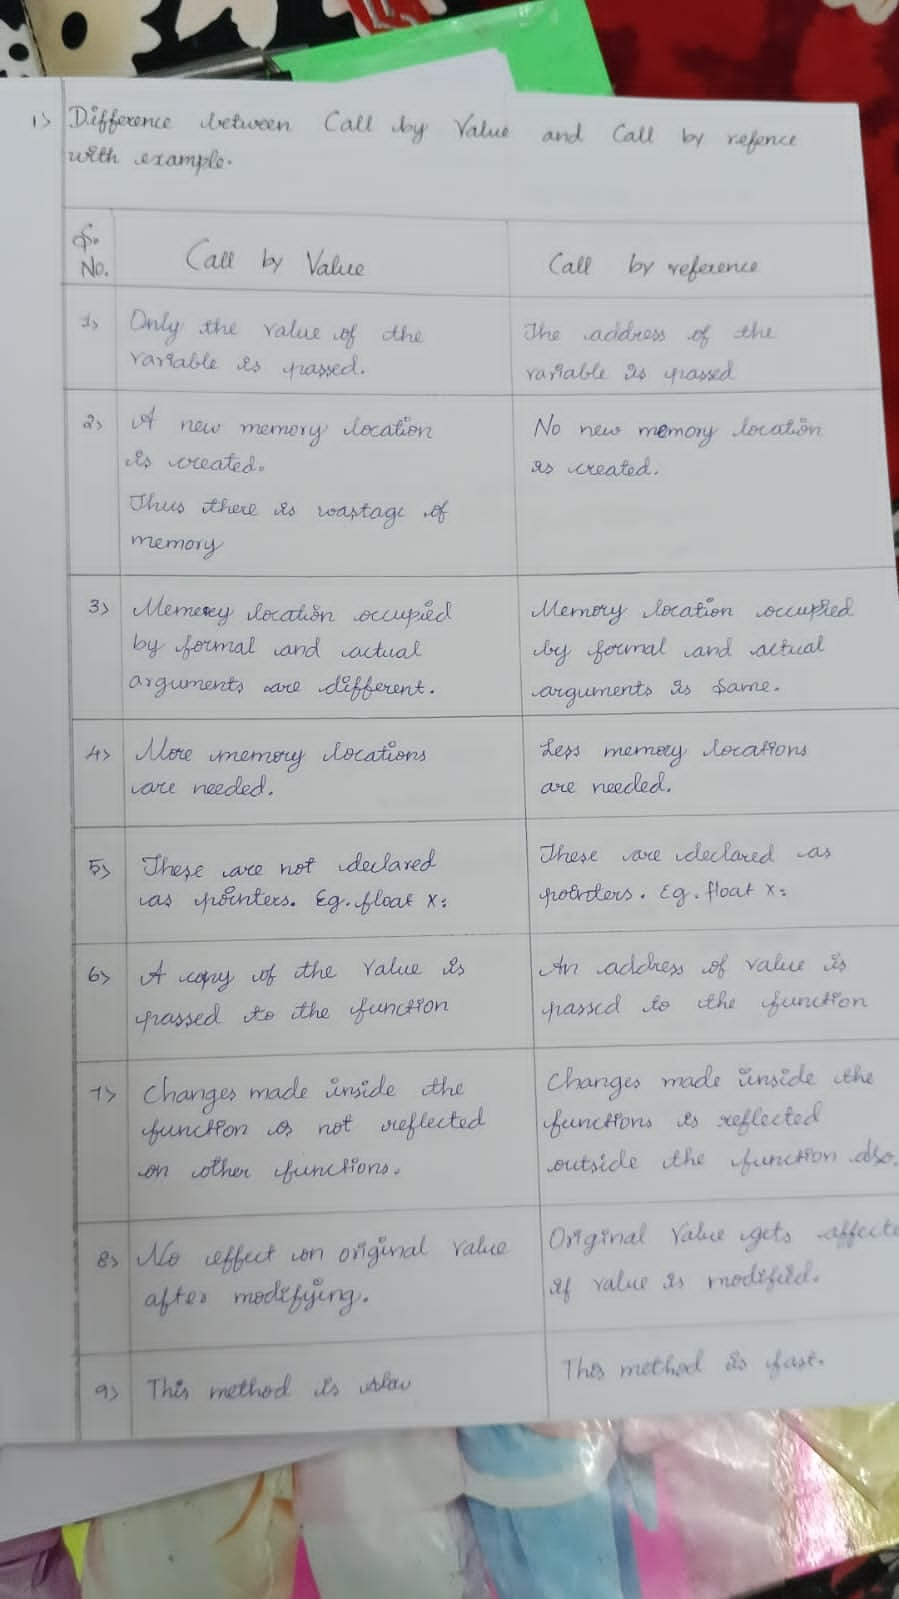 1) Difference between Call by Value and Call by refence
with example.
S.
No.
Call by Value
Call by reference
1)
Only the value of the
variable is passed.
The address of the
variable is passed
2)
A new memory location
is created.
Thus there is wastage of
memory
No new memory location
is created.
3)
Memory location occupied
by formal and actual
arguments are different.
Memory location occupied
by formal and actual
arguments is same.
4)
More memory locations
are needed.
Less memory locations
are needed.
5)
These are not declared
as pointers. Eg. float x;
These are declared as
pointers. Eg. float x;
6)
A copy of the value is
passed to the function
An address of value is
passed to the function
7)
Changes made inside the
function is not reflected
on other functions.
Changes made inside the
functions is reflected
outside the function also.
8)
No effect on original value
after modifying.
Original Value gets affecte
if value is modified.
9)
This method is slow
This method is fast.